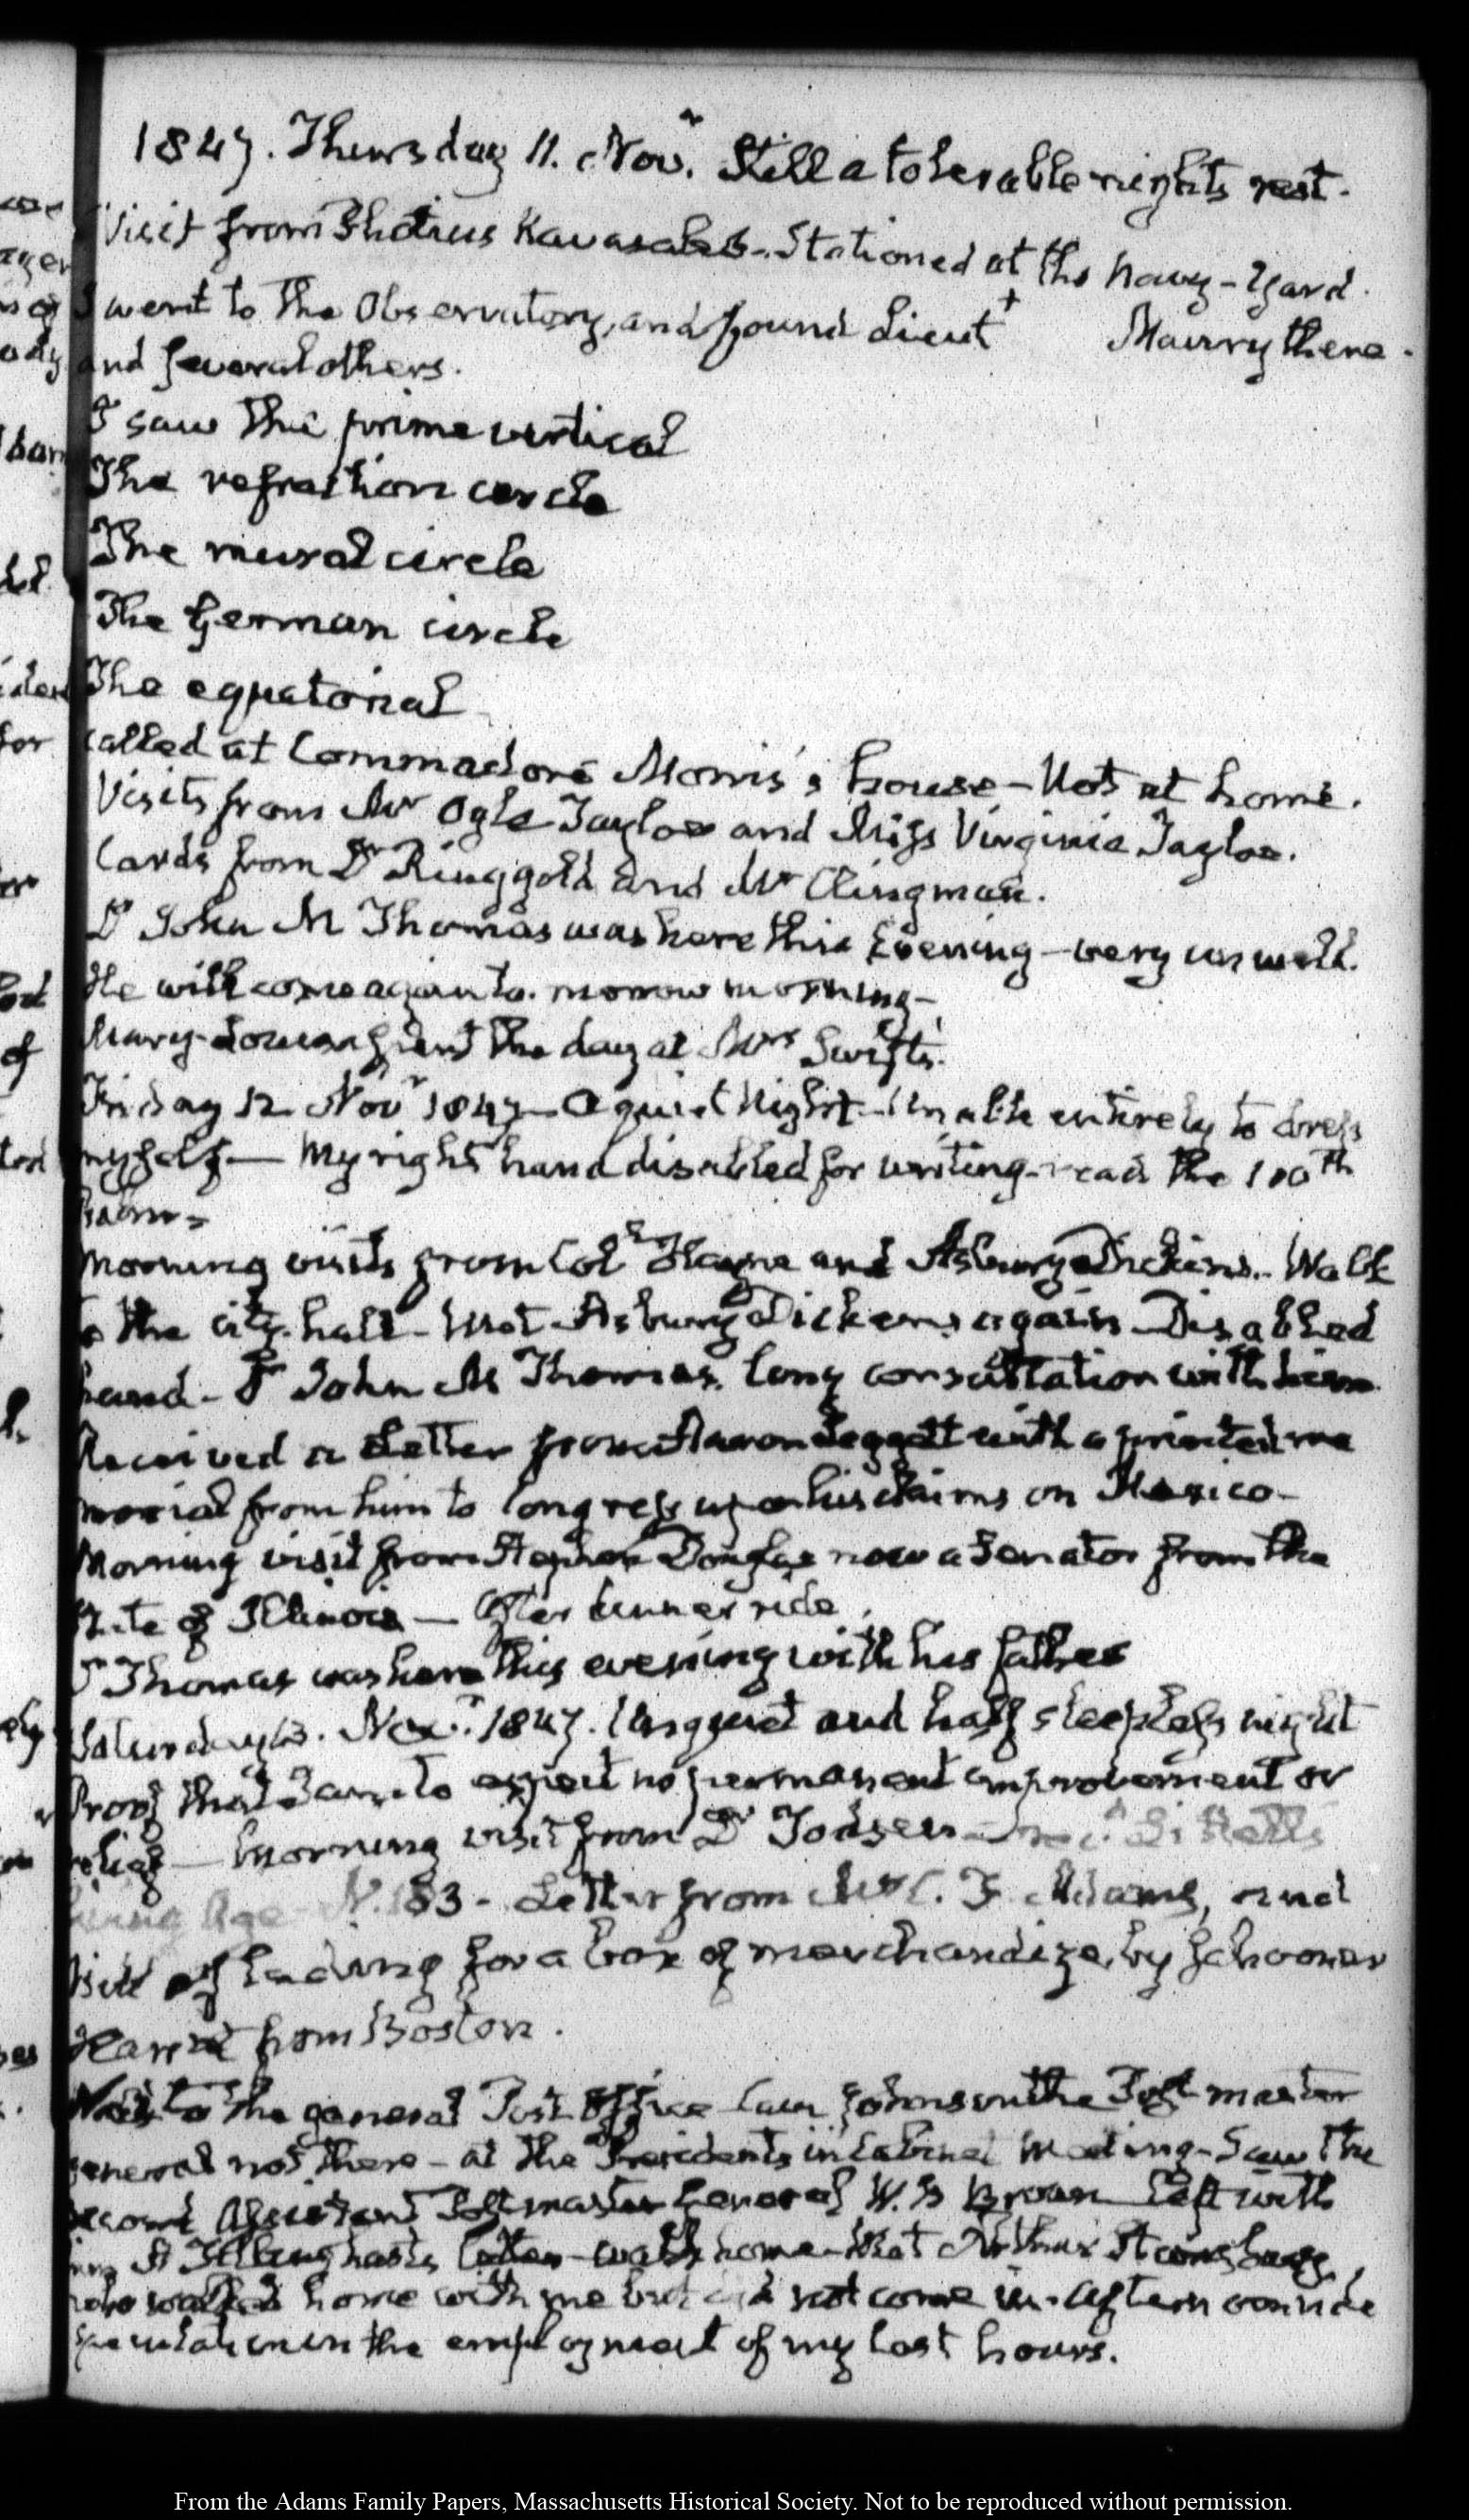 1847. Thursday 11. Novr. Still a tolerable nights rest.
Visit from Photius Kavasales. Stationed at the Navy-Yard.
I went to the Observatory, and found Lieut+ Maury there.
and several others.
I saw the prime vertical
The refraction circle
The mural circle
The German circle
The equatorial
called at Commodore Morris's house - Not at home.
Visits from Mr Ogle Tayloe and Miss Virginia Tayloe.
Cards from Dr Ringgold and Mr Clingman.
Dr John M Thomas was here this Evening - very unwell.
He will come again to-morrow morning -
Mary-Louisa spent the day at Mrs Swift's.
Friday 12 Novr 1847 - A quiet Night - Unable entirely to dress
myself - My right hand disabled for writing - read the 100th
Psalm -
Morning visits from Col Hayne and Asbury Dickins. Walk
to the city hall - Met Asbury Dickens again - Disabled
hand - Dr John M Thomas, long consultation with him
Received a Letter from Aaron Leggett with a printed me
morial from him to Congress upon his claims on Mexico -
Morning visit from Stephen Douglas now a Senator from the
State of Illinois - After dinner ride.
Dr Thomas was here this evening with his father
Saturday 13. Novr. 1847. Unquiet and half sleepless night
Proof that I am to expect no permanent improvement or
relief - Morning visit from Dr Todsen - Littells
Living Age - N. 183 - Letter from Mr C. F. Adams, and
Bill of lading for a box of merchandize, by Schooner
Harriet from Boston.
Walk to the general Post Office Cave Johnson the Post master
general not there - at the Presidents in Cabinet Meeting - Saw the
second Assistant Postmaster General W. Brown Left with
him Tillinghasts letter - walk home - Met
who walked home with me but did not come in - Afternoon ride
speculation in the employment of my last hours.
From the Adams Family Papers, Massachusetts Historical Society. Not to be reproduced without permission.